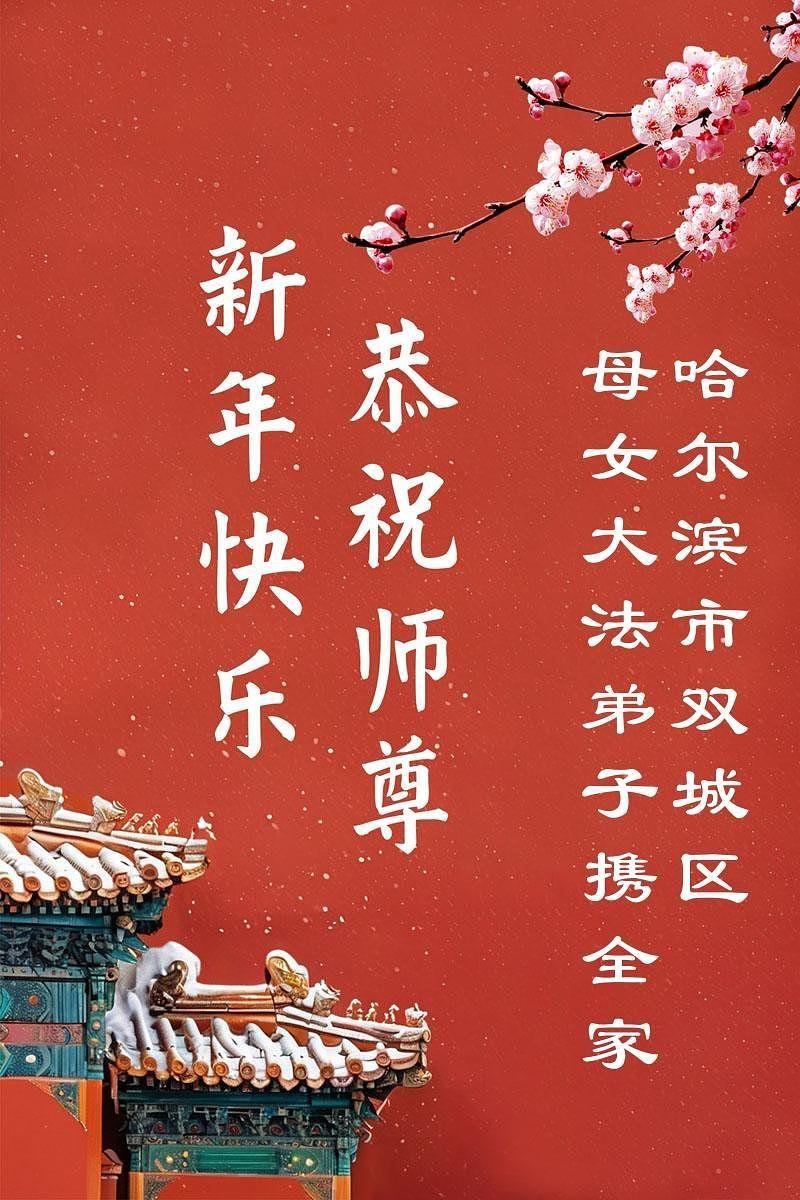 哈尔滨市双城区
母女大法弟子携全家
恭祝师尊
新年快乐